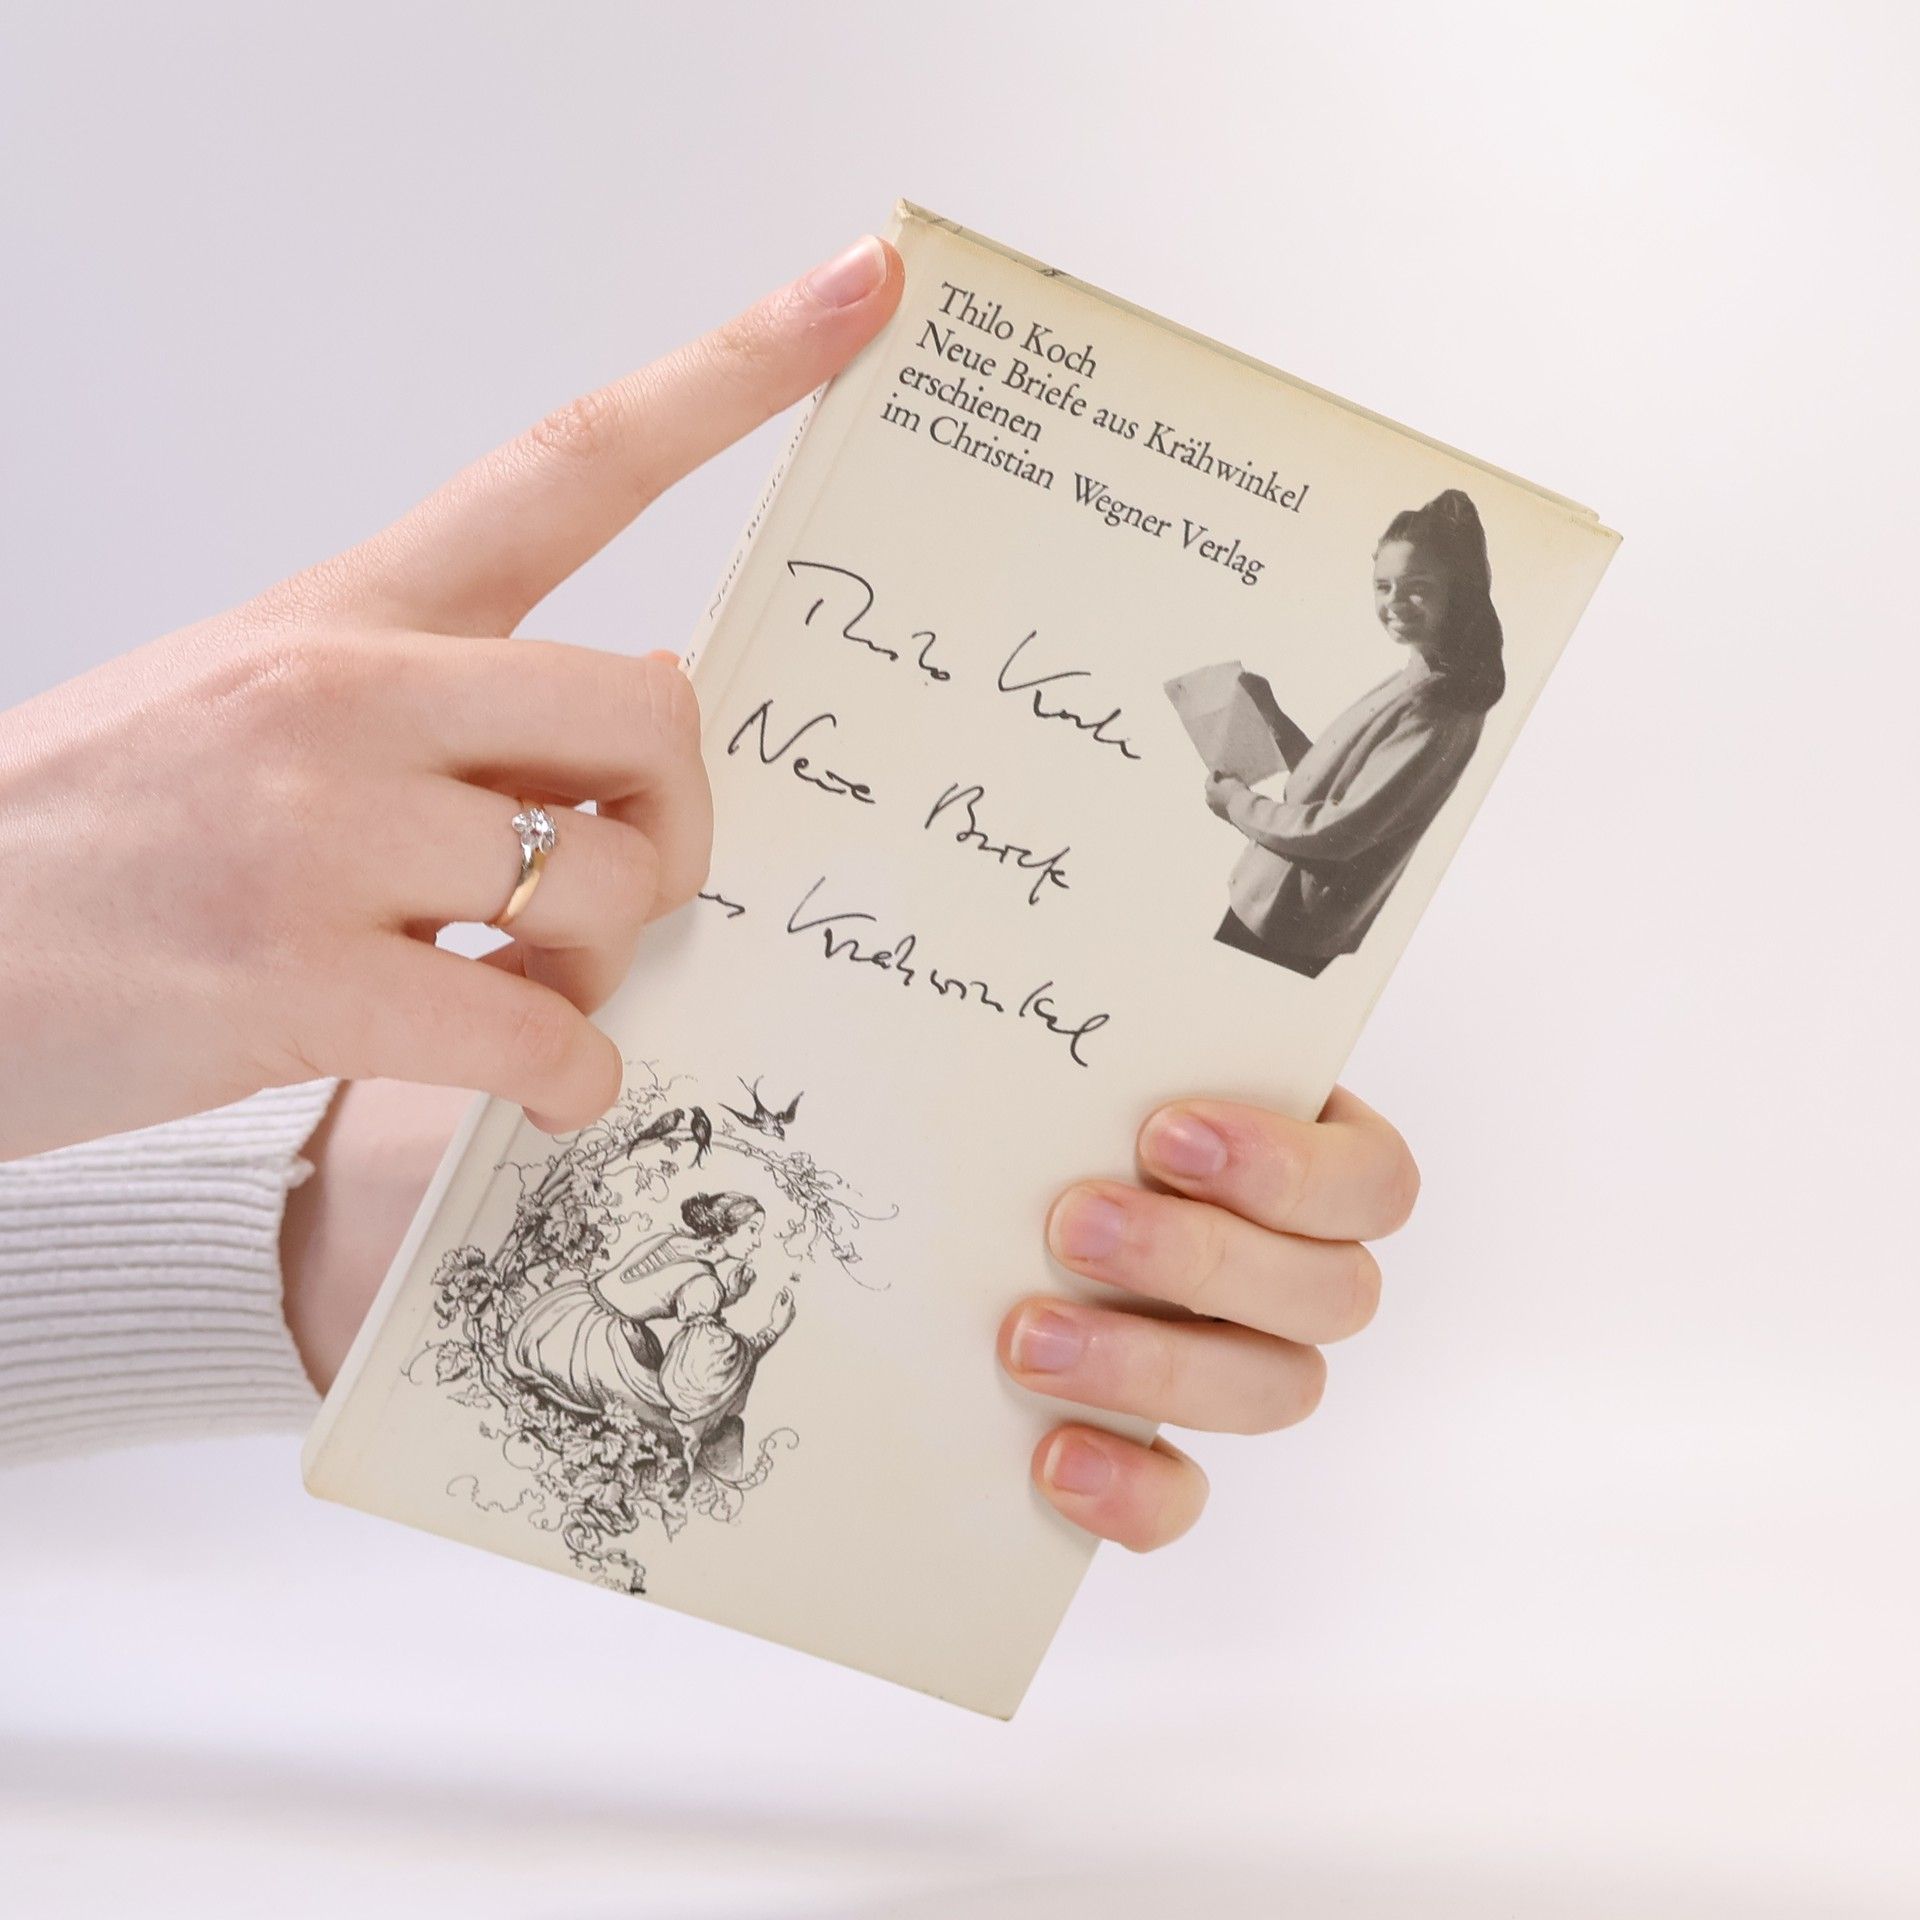 Thilo Koch
Neue Briefe aus Krähwinkel
erschienen
im Christian Wegner Verlag
Thilo Koch
Neue Briefe
Krähwinkel
Neue Briefe aus